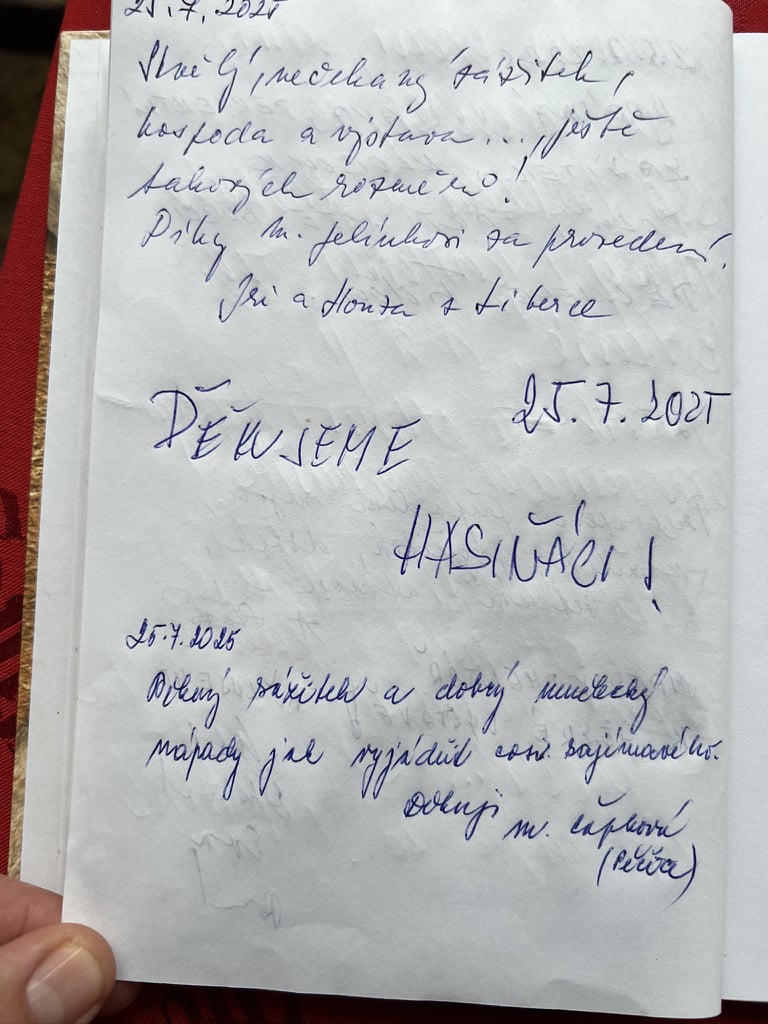 25.7.2025
Skvělý, nečekaný zážitek,
hospoda a výstava..., ještě
takových rozměrů!
Díky m. Jelínkovi za provedení.
Jri a Honza z Liberce
25.7.2025
DĚKUJEME
HASIŇÁCI!
25.7.2025
Pěkný zážitek a dobrý umělecký
nápady jak vyjádřit cosi zajímavého.
Děkuji
M. Čápková